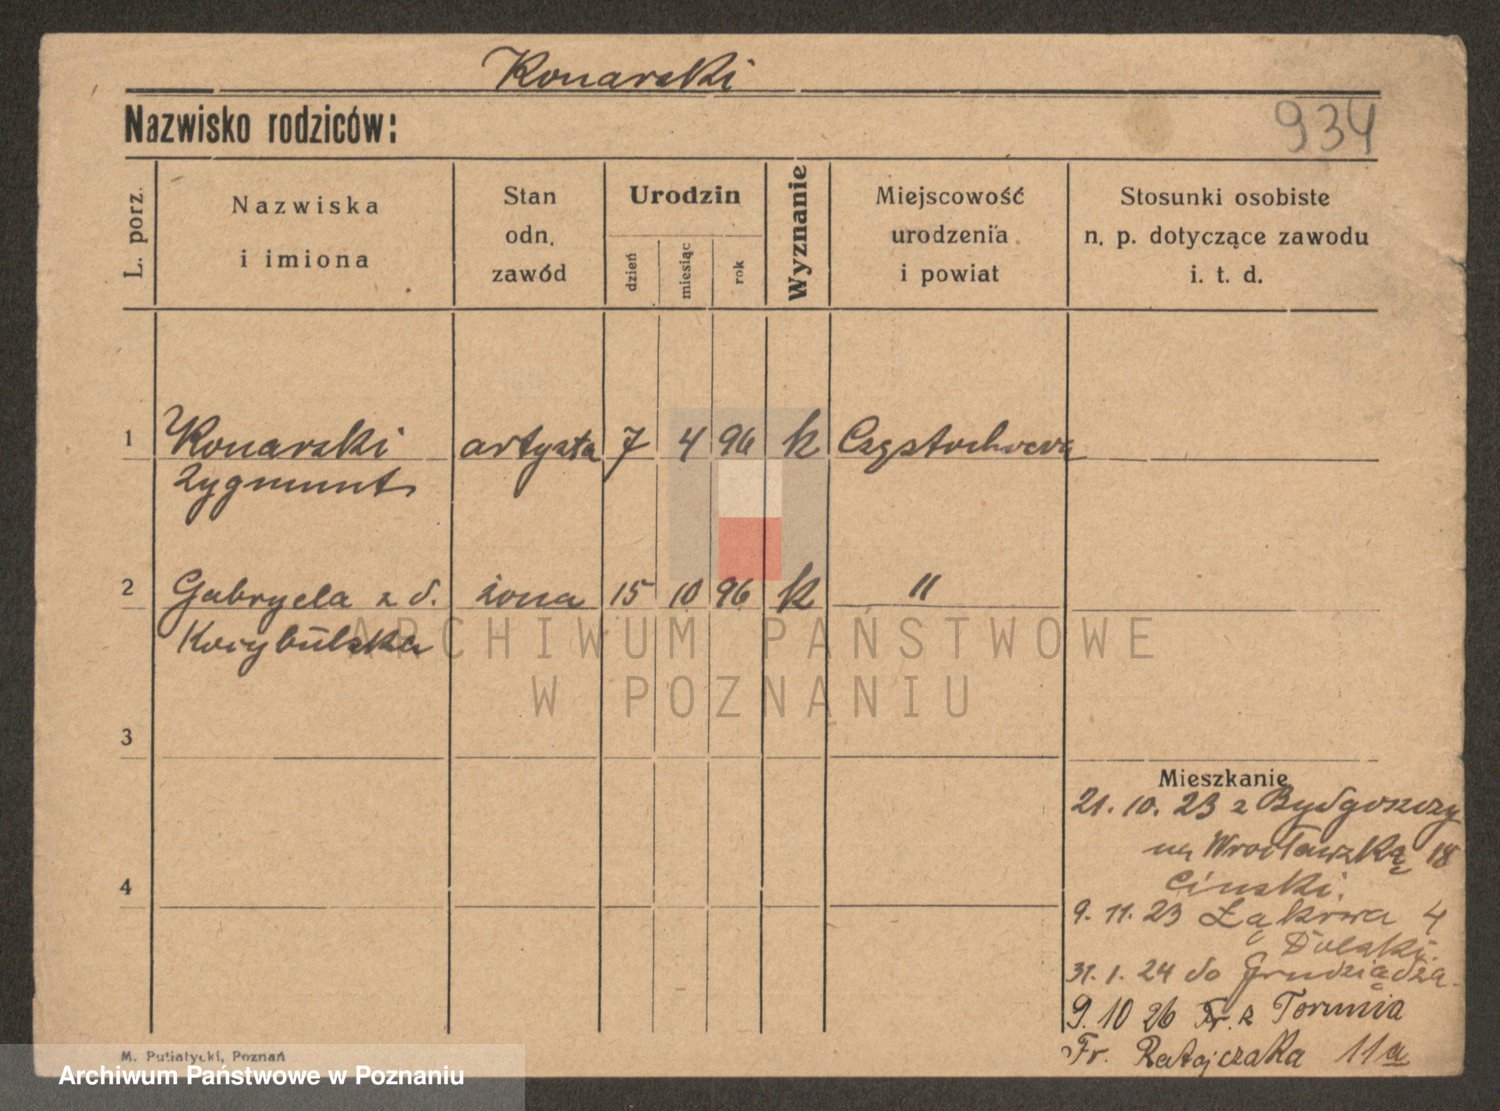 Konarski
Nazwisko rodziców:
934
L. porz.
Nazwiska
i imiona
Stan
odn.
zawód
Urodzin
dzień
miesiąc
rok
Wyznanie
Miejscowość
urodzenia
i powiat
Stosunki osobiste
n. p. dotyczące zawodu
i. t. d.
1 Konarski artysta 7 4 96 k Częstochowa
Zygmunt
2 Gabryela z d. żona 15 10 96 k "
Korybulska
ARCHIWUM PAŃSTWOWE
W POZNANIU
3
Mieszkanie
21. 10. 23 z Bydgoszczy
na Wrocławską 18
Cinski.
4
9. 11. 23 Łąkowa 4
Dolski.
31. 1. 24 do Grudziądza.
9. 10 26 Fr. z Torunia
Fr. Ratajczaka 11a
M. Putiatycki, Poznań
Archiwum Państwowe w Poznaniu